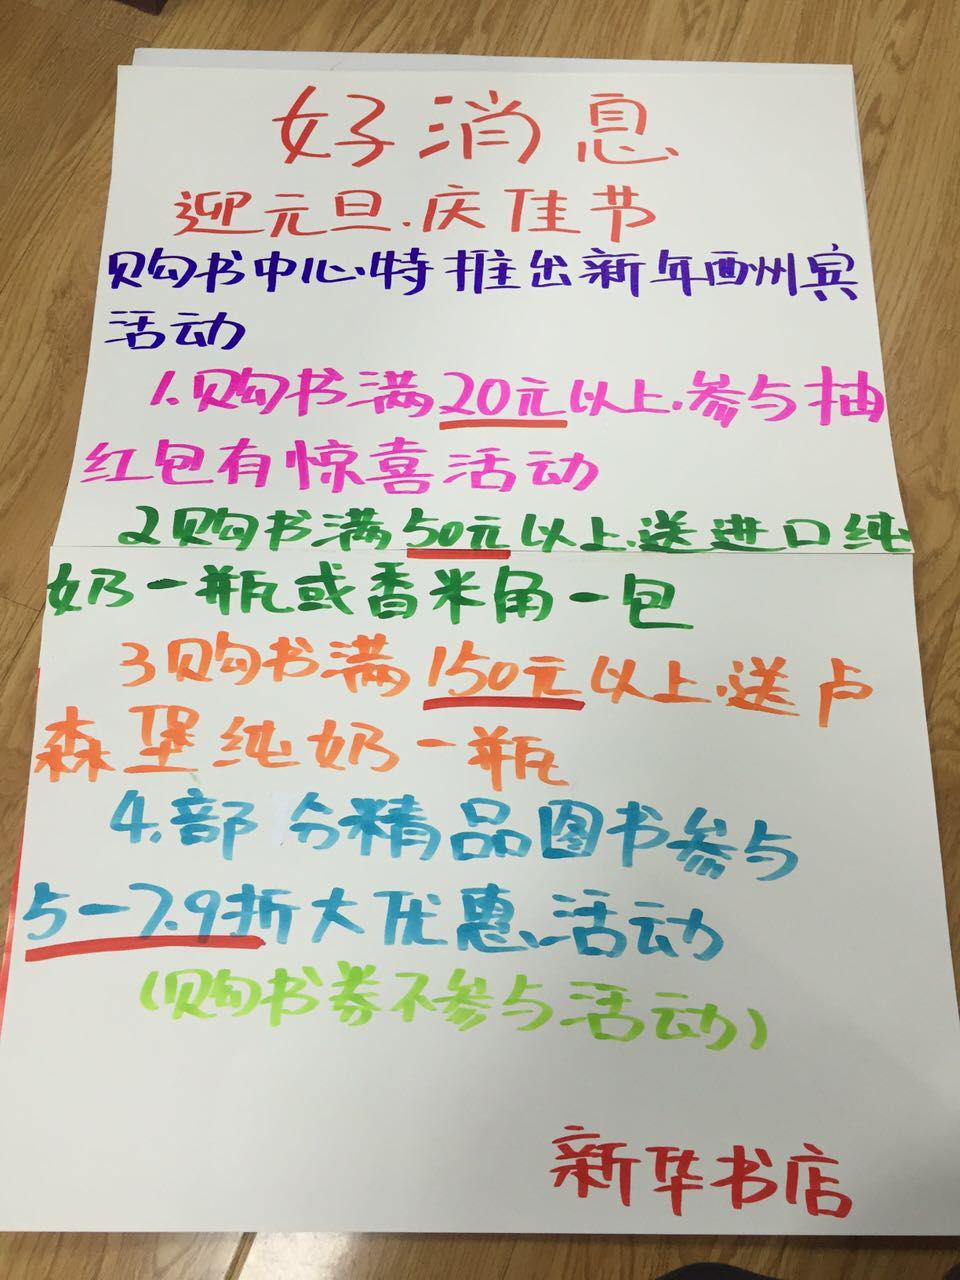 好消息
迎元旦.庆佳节
购书中心特推出新年酬宾
活动
1.购书满20元以上.参与抽
红包有惊喜活动
2购书满50元以上.送进口纯
奶一瓶或香米角一包
3购书满150元以上.送卢
森堡纯奶一瓶
4.部分精品图书参与
5-7.9折大优惠.活动
(购书券不参与活动)
新华书店